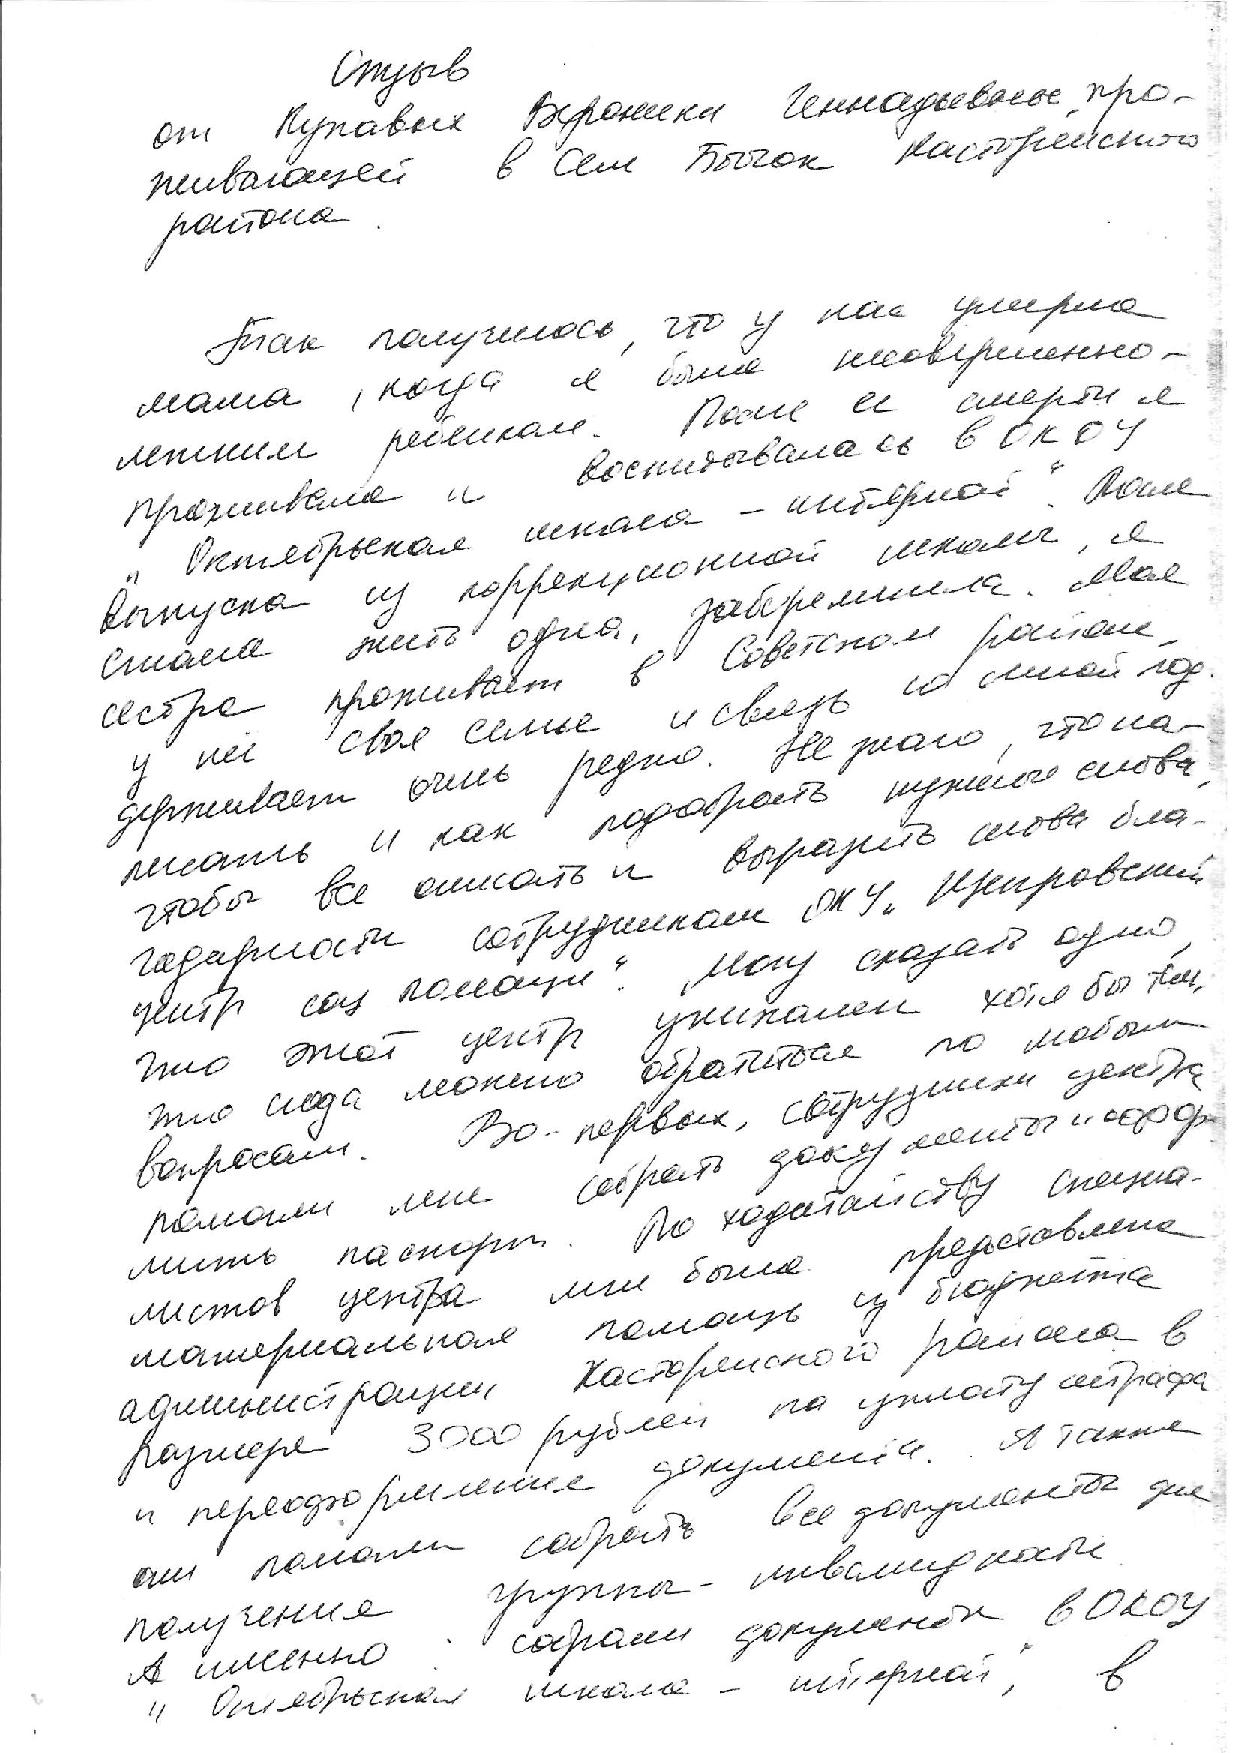 Отзыв
от Пупавых Вероники Геннадьевны, про-
живающей в Сем Бычок Касторенского
района.
Так получилось, что у нас умерла
мама, когда я была несовершенно-
летним ребенком. После ее смерти я
проживала и воспитывалась в ОКОУ
"Октябрьская школа-интернат". После
выпуска из коррекционной школы, я
стала жить одна, забеременила. Моя
сестра проживает в Советском районе,
у неё своя семья и связь со мной под-
держивает очень редко. Не знаю, что на-
писать и как подобрать нужные слова,
чтобы все описать и выразить слова бла-
годарности сотрудникам ОКУ "Щигровский
центр соц помощи". Могу сказать одно,
что этот центр уникален хотя бы тем,
что сюда можно обратиться по любым
вопросам. Во-первых, сотрудники центра
помогли мне собрать документы и офор-
мить паспорт. По ходатайству специа-
листов центра мне была предоставлена
материальная помощь из бюджета
администрации Касторенского района в
размере 3000 рублей на уплату штрафа
и переоформление документа. А также
они помогли собрать все документы для
получения группы - инвалидности
А именно: собрали документы в ОКОУ
"Октябрьская школа-интернат", в